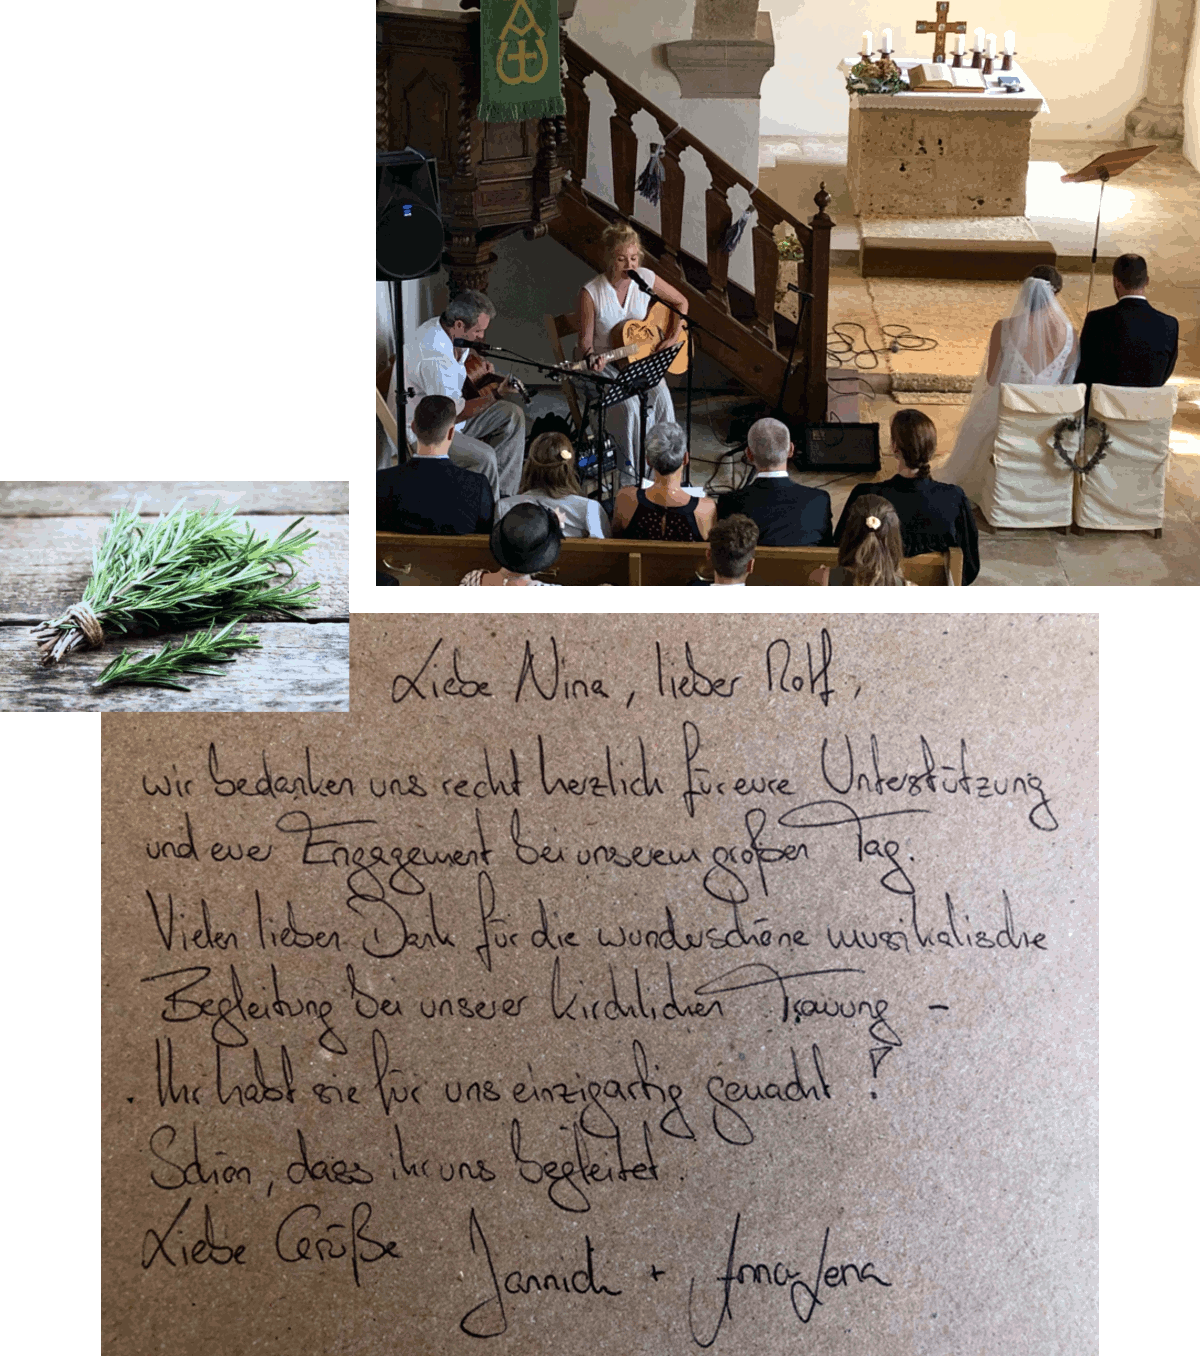 Liebe Nina, lieber Rolf,
wir bedanken uns recht herzlich für eure Unterstützung
und euer Engagement bei unserem großen Tag.
Vielen lieben Dank für die wunderschöne musikalische
Begleitung bei unserer kirchlichen Trauung –
Ihr habt sie für uns einzigartig gemacht!
Schön, dass ihr uns begleitet.
Liebe Grüße Jannick + Anna Lena